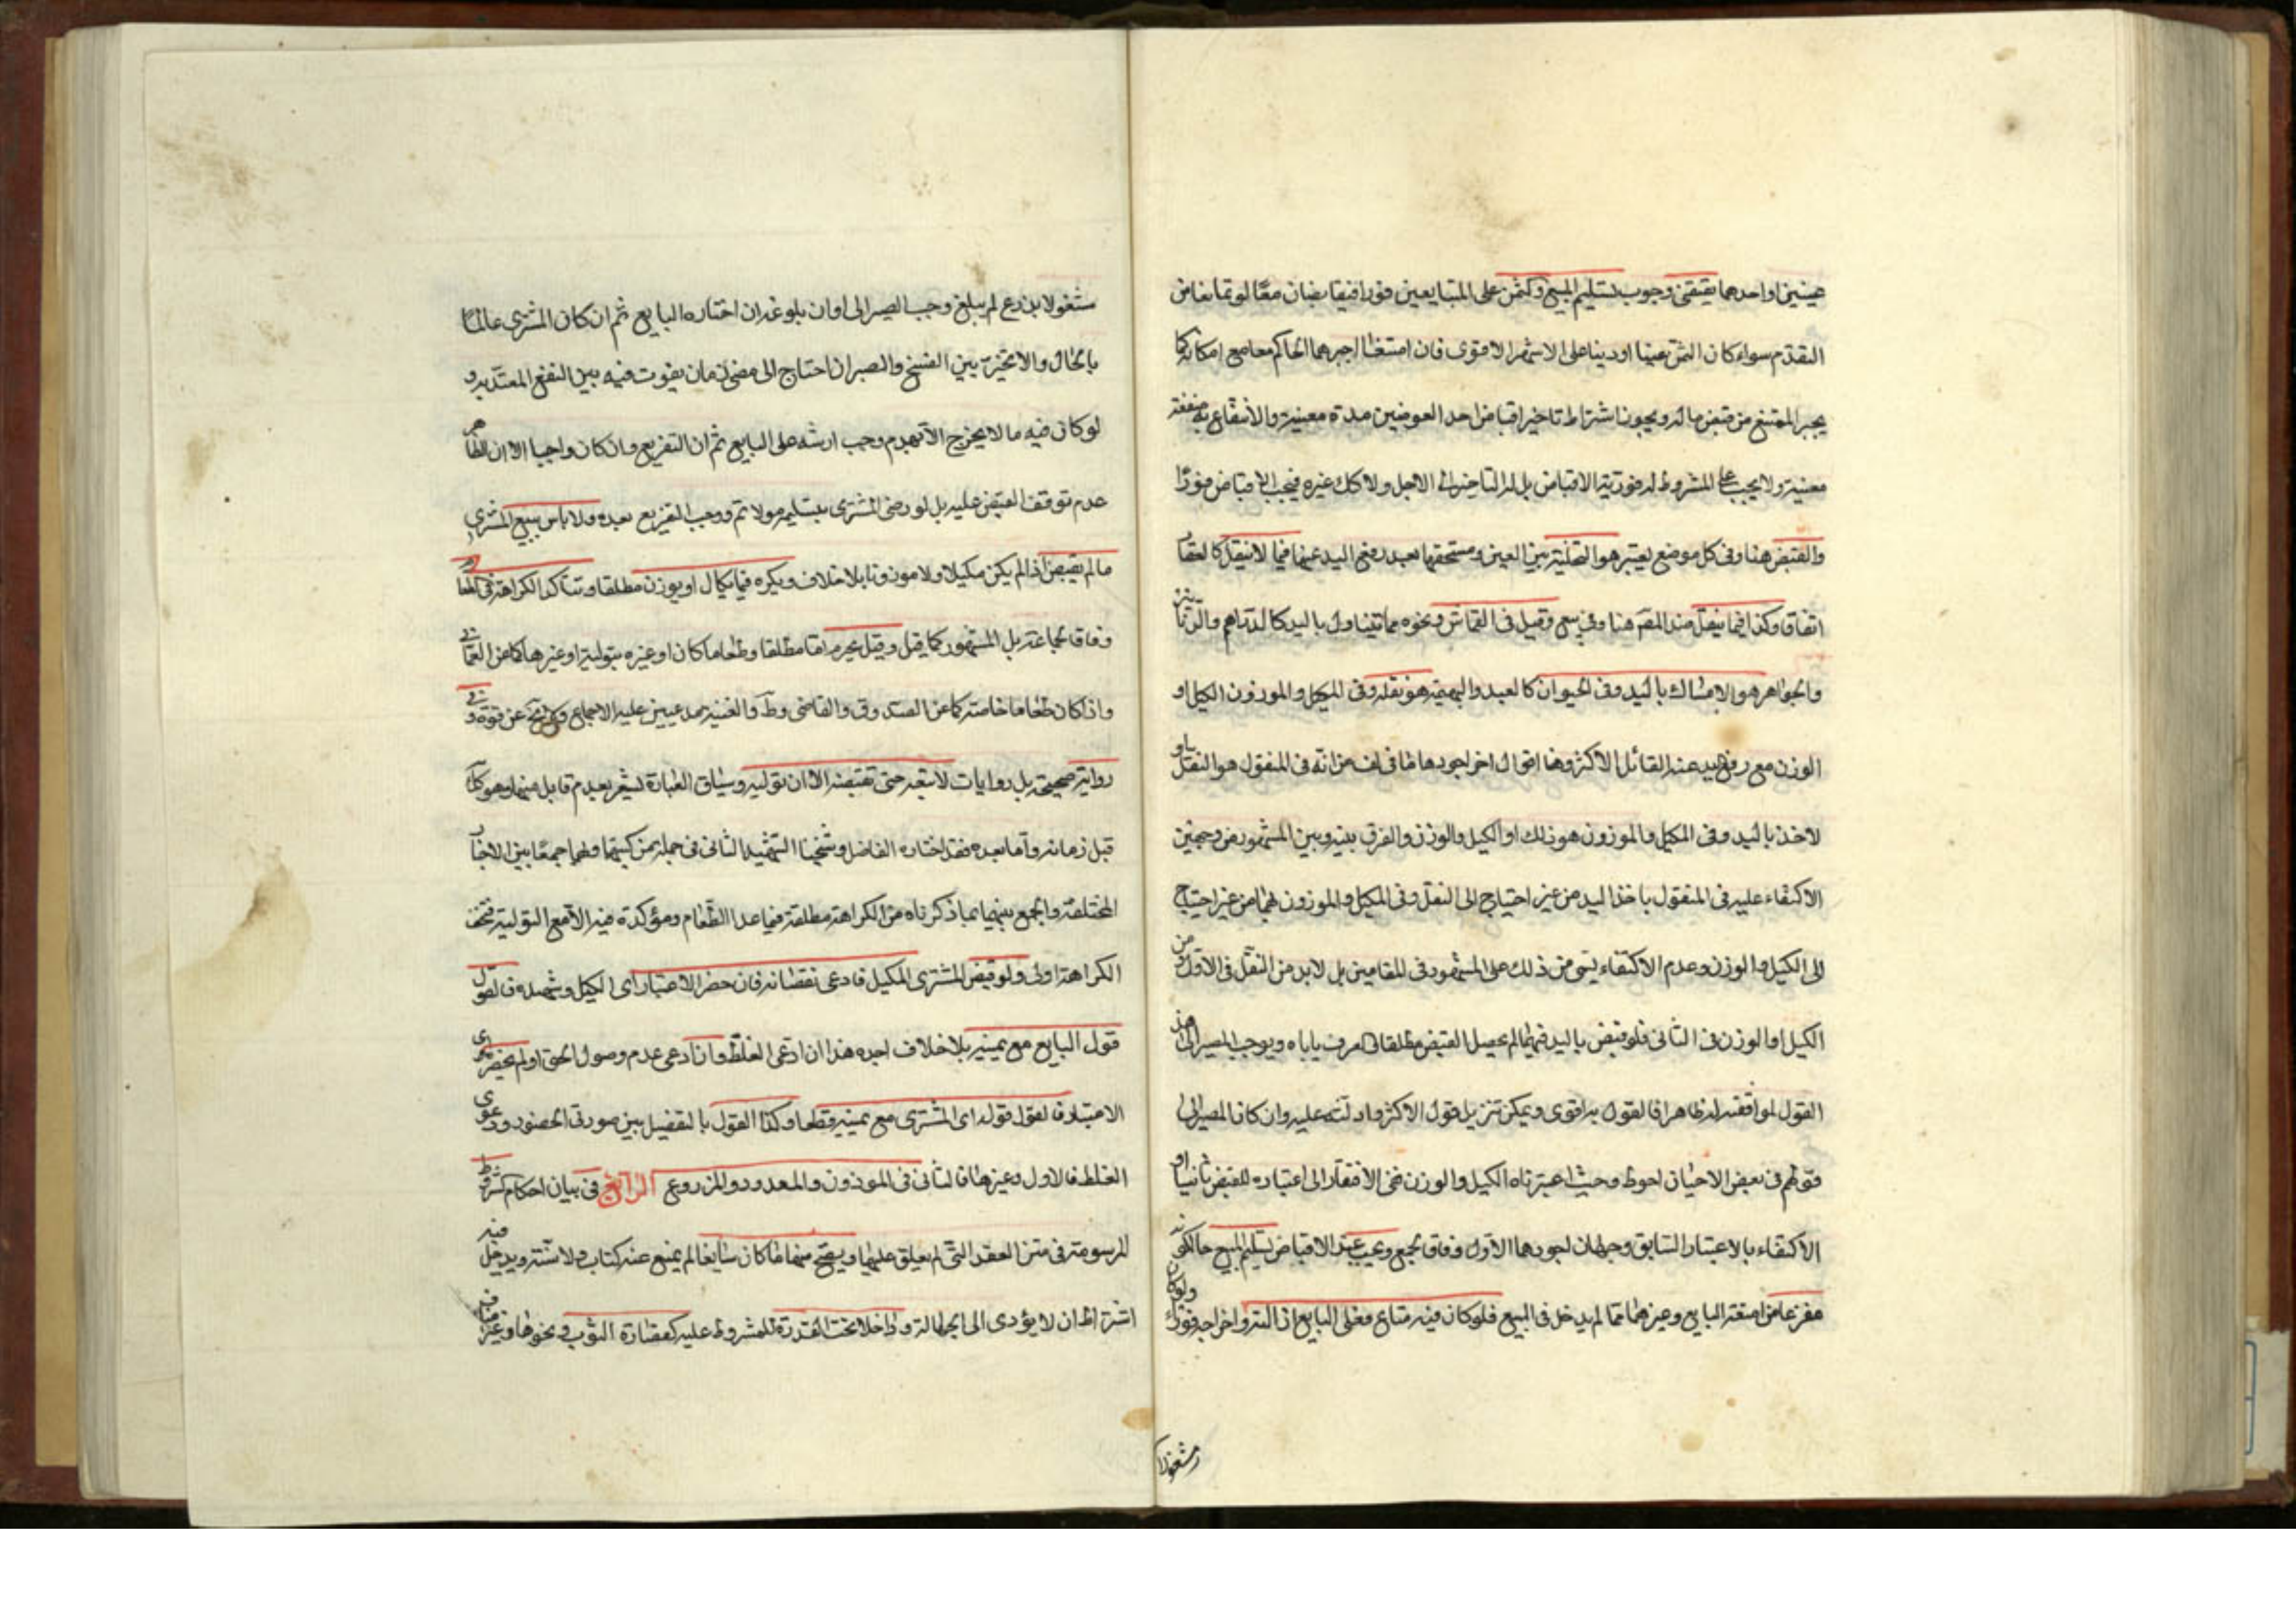 عينين او احدهما يقتضى وجوب تسليم المبيع والثمن على المتبايعين فورا فيتقابضان معًا لو تمانعا من
التقدم سواء كان الثمن عينا او دينا على الاشهر الاقوى فان امتنعا اجبرهما الحاكم معا مع امكانه كما
يجبر الممتنع من قبض ماله ويجوز اشتراط تاخير اقباض احد العوضين مدة معينة والانتفاع به منفعة
معينة ولا يجب على المشروط له فورية الاقباض بل له التاخير الى الاجل ولا كك غيره فيجب الاقباض فورًا
والقبض هنا وفى كل موضع يعتبر هو التخلية بين العين ومستحقها بعد رفع اليد عنها فيما لا ينقل كالعقار
اتفاقا وكذا فيما ينقل عند المصـ هنا وفى يع وقيل فى القماش ونحوه مما يتناول باليد كالدراهم والدنانير
والجواهر هو الامساك باليد وفى الحيوان كالعبد والبهيمة هو نقله وفى المكيل والموزون الكيل او
الوزن مع رفع اليد عنه القائل الاكثر وهنا اقوال اخر اجودها ما فى لف من انه فى المنقول هو النقل او
لاخذ باليد وفى المكيل والموزون هو ذلك او الكيل والوزن والفرق بينه وبين المشهور من وجهين
الاكتفاء عليه فى المنقول باخذ اليد من غير احتياج الى النقل وفى المكيل والموزون بهما من غير احتياج
الى الكيل والوزن وعدم الاكتفاء بشئ من ذلك على المشهور فى المقامين بل لابد من النقل فى الاول ومن
الكيل او الوزن فى الثانى فلو قبض باليد فيهما لم يحصل القبض مطلقا والعرف ياباه ويوجب المصير الى هذا
القول لموافقته له ظاهرا فالقول به اقوى ويمكن تنزيل قول الاكثر وادلته عليه وان كان المصير الى
قولهم فى بعض الاحيان احوط وحيث اعتبرناه الكيل والوزن ففى الافتقار الى اعتباره للقبض ثانيا او
الاكتفاء بالاعتبار السابق وجهان اجودهما الاول وفاقا لجمع ويجب عند الاقباض تسليم المبيع حالكونه
مفرغا من امتعة البايع وغيرها مما لم يدخل فى البيع فلو كان فيه متاع فعلى البايع ازالته واخراجه فورًا ولو كان
مشغولا
مشغولا بزرع لم يبلغ وجب الصبر الى اوان بلوغه ان اختاره البايع ثم ان كان المشترى عالمًا
بالحال والا تخير بين الفسخ والصبر ان احتاج الى مضى زمان يفوت فيه بين النفع المعتد به و
لو كان فيه ما لا يخرج الا بهدم وجب ارشه على البايع ثم ان التفريغ وان كان واجبا الا ان الظاهر
عدم توقف القبض عليه بل لو رضى المشترى بتسليمه مولاتم ووجب التفريغ بعده ولا باس ببيع المشترى
ما لم يقبض اذا لم يكن مكيلا ولا موزونا بلا خلاف ويكره فيما يكال او يوزن مطلقا وتتاكد الكراهة فى الطعام
وفاقا لجماعة بل المشهور كما قيل وقيل يحرم اما مطلقا وطعاما كان او غيره بتولية او غيرها كما عن العمانى
واذا كان طعاما خاصة كما عن الصدوق والقاضى وط والغنية مدعيين عليه الاجماع عن قوة و فى
رواية صحيحة بل روايات لا تبعه حتى تقبضه الا ان توليه وسياق العبارة يشعر بعدم قايل منهما وهو كك
قبل زمانه واما بعده فقد اختاره الفاضل وشيخنا الشهيد الثانى فى جملة من كتبهما ولهما جمعًا بين الاخبار
المختلفة والجمع بينهما بما ذكرناه من الكراهة مطلقة فيما عدا الطعام ومؤكدة فيه الا مع التولية فتخف
الكراهة اولى ولو قبض المشترى المكيل فادعى نقصانه فان حضر الاعتبار اى الكيل وشهده فالقول
قول البايع مع يمينه بلا خلاف اجده هذا ان ادعى الغلط وان ادعى عدم وصول الحق او لم يحضر اى
الاعتبار فالقول قوله اى المشترى مع يمينه قطعا وكذا القول بالتفصيل بين صورتى الحضور ودعوى
الغلط فالاول وغيرها فالثانى فى الموزون والمعدود والمذروع الرابع فى بيان احكام الشروط
المرسومة فى متن العقد التى لم يعلق عليها ويصح منها ما كان سايغا لم يمنع عنه كتاب ولا سنة ويدخل فيه
اشتراط ان لا يؤدى الى الجهالة وداخلا تحت القدرة للمشروط عليه كقصارة الثوب ونحوها وغير